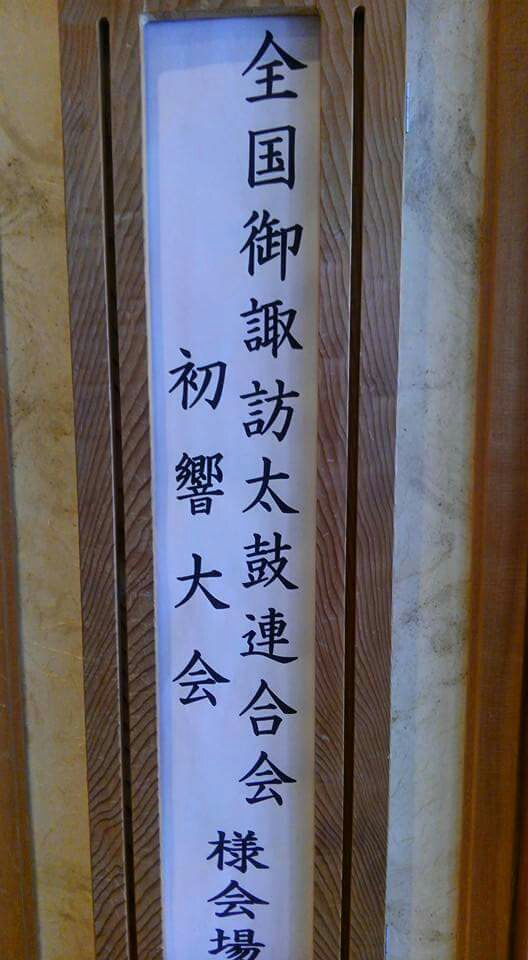 全国御諏訪太鼓連合会
初響大会
様会場